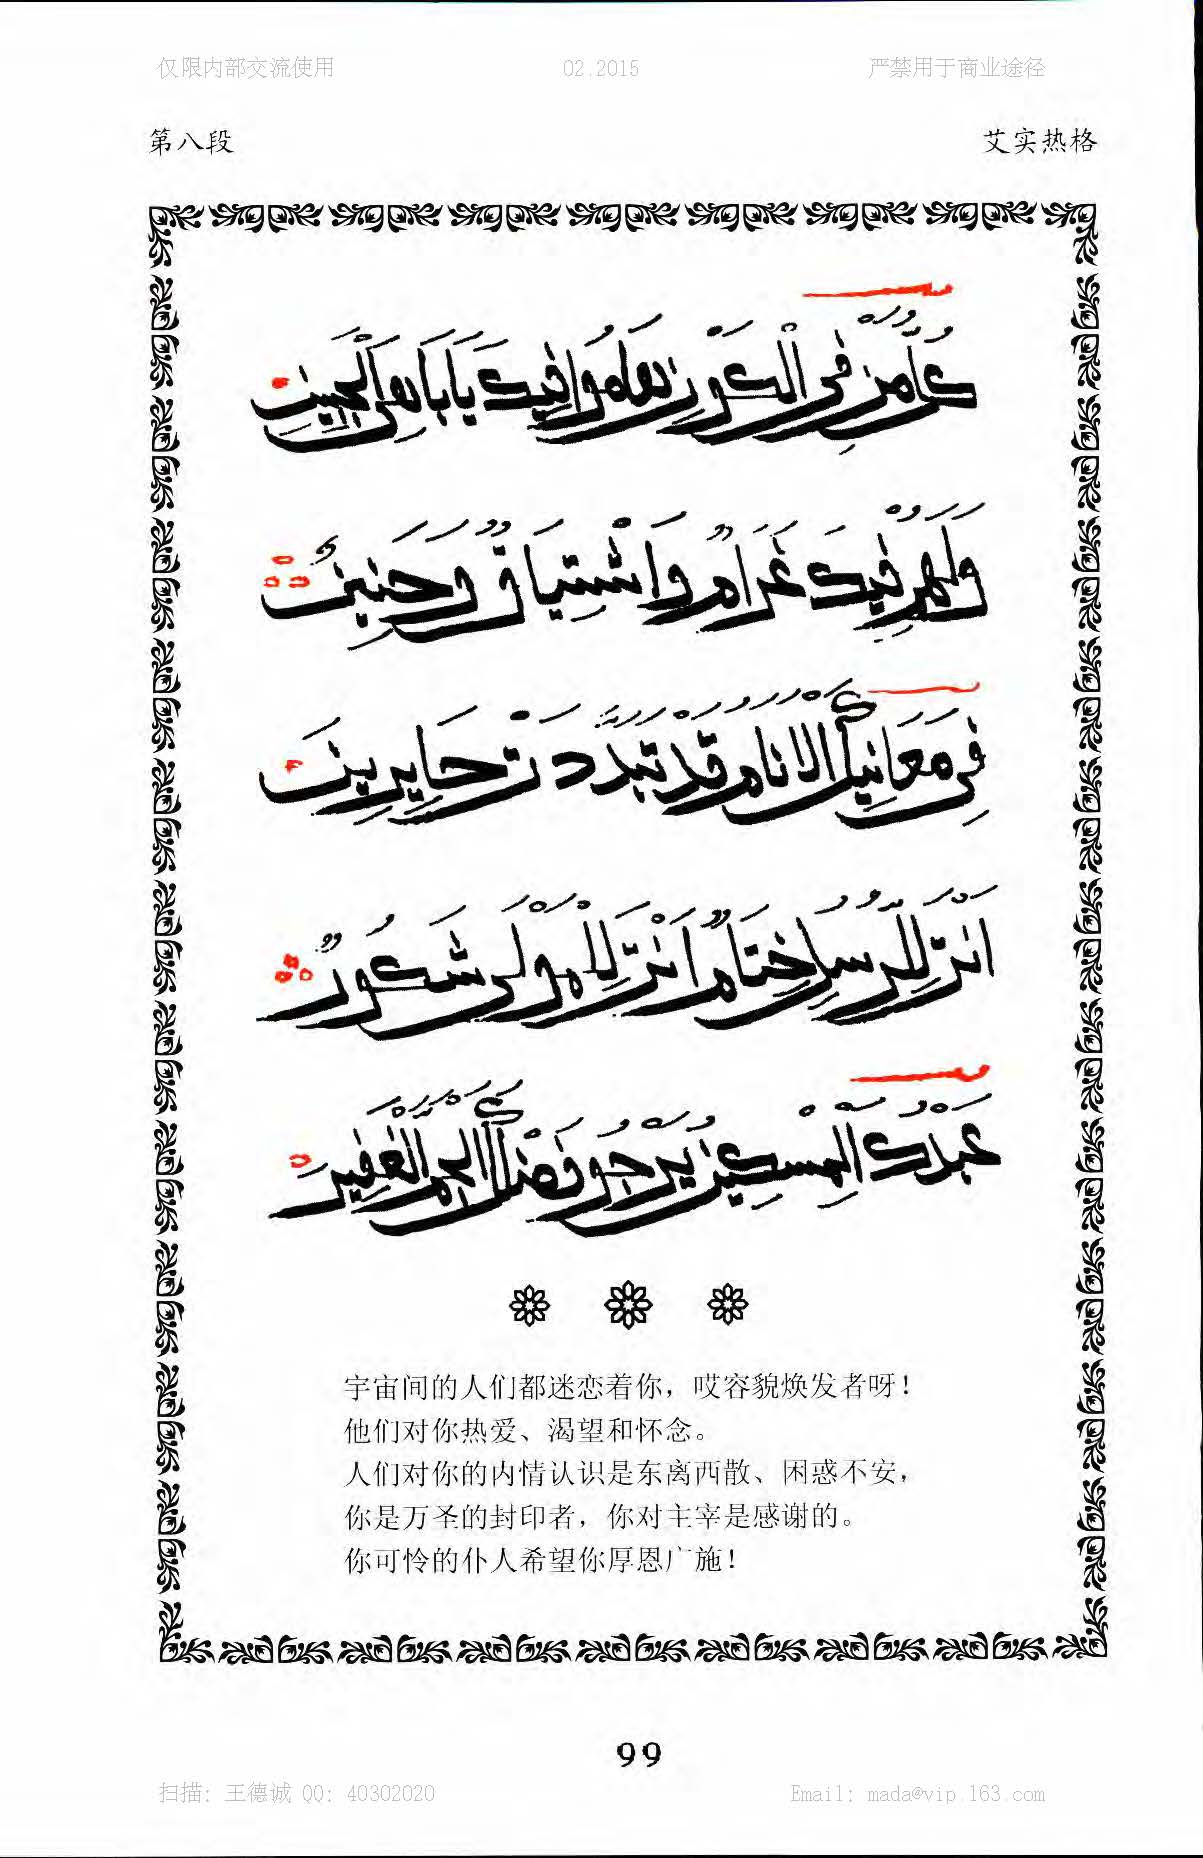 仅限内部交流使用 02.2015 严禁用于商业途径
第八段 艾实热格
كل من في الكون هاموا فيك يا باهي الجبين
ولهم فيك غرام واشتياق وحنين
في معانيك الانام قد تبددت حايرين
انت للرسل ختام انت للمولى شكور
عبدك المسكين يرجو فضلك الجم الغفير
宇宙间的人们都迷恋着你，哎容貌焕发者呀！
他们对你热爱、渴望和怀念。
人们对你的内情认识是东离西散、困惑不安，
你是万圣的封印者，你对主宰是感谢的。
你可怜的仆人希望你厚恩广施！
99
扫描: 王德诚 QQ: 40302020 Email: mada@vip.163.com